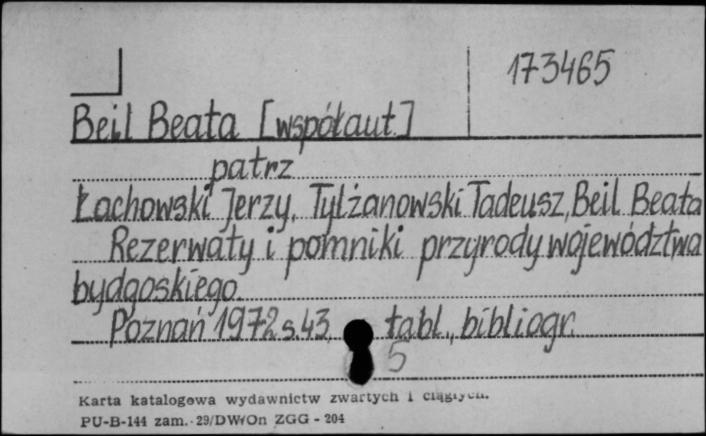 173465
Beil Beata [współaut.]
patrz
Łachowski Jerzy, Tylżanowski Tadeusz, Beil Beata
Rezerwaty i pomniki przyrody województwa
bydgoskiego.
Poznań 1972 s. 43, tabl., bibliogr.
5
Karta katalogowa wydawnictw zwartych i ciągłych.
PU-B-144 zam. 29/DWrOn ZGG - 204